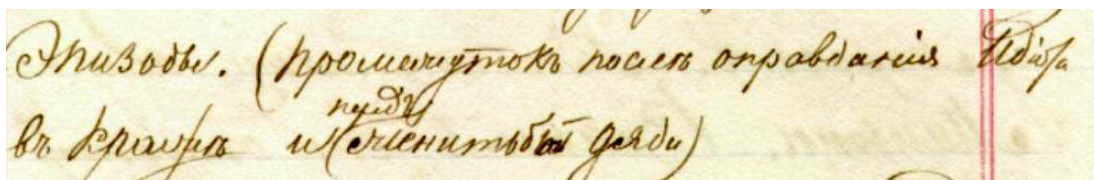 Эпизоды. (промежутокъ послѣ оправданія Идіота
въ кражѣ и (передъ женитьбой дяди)